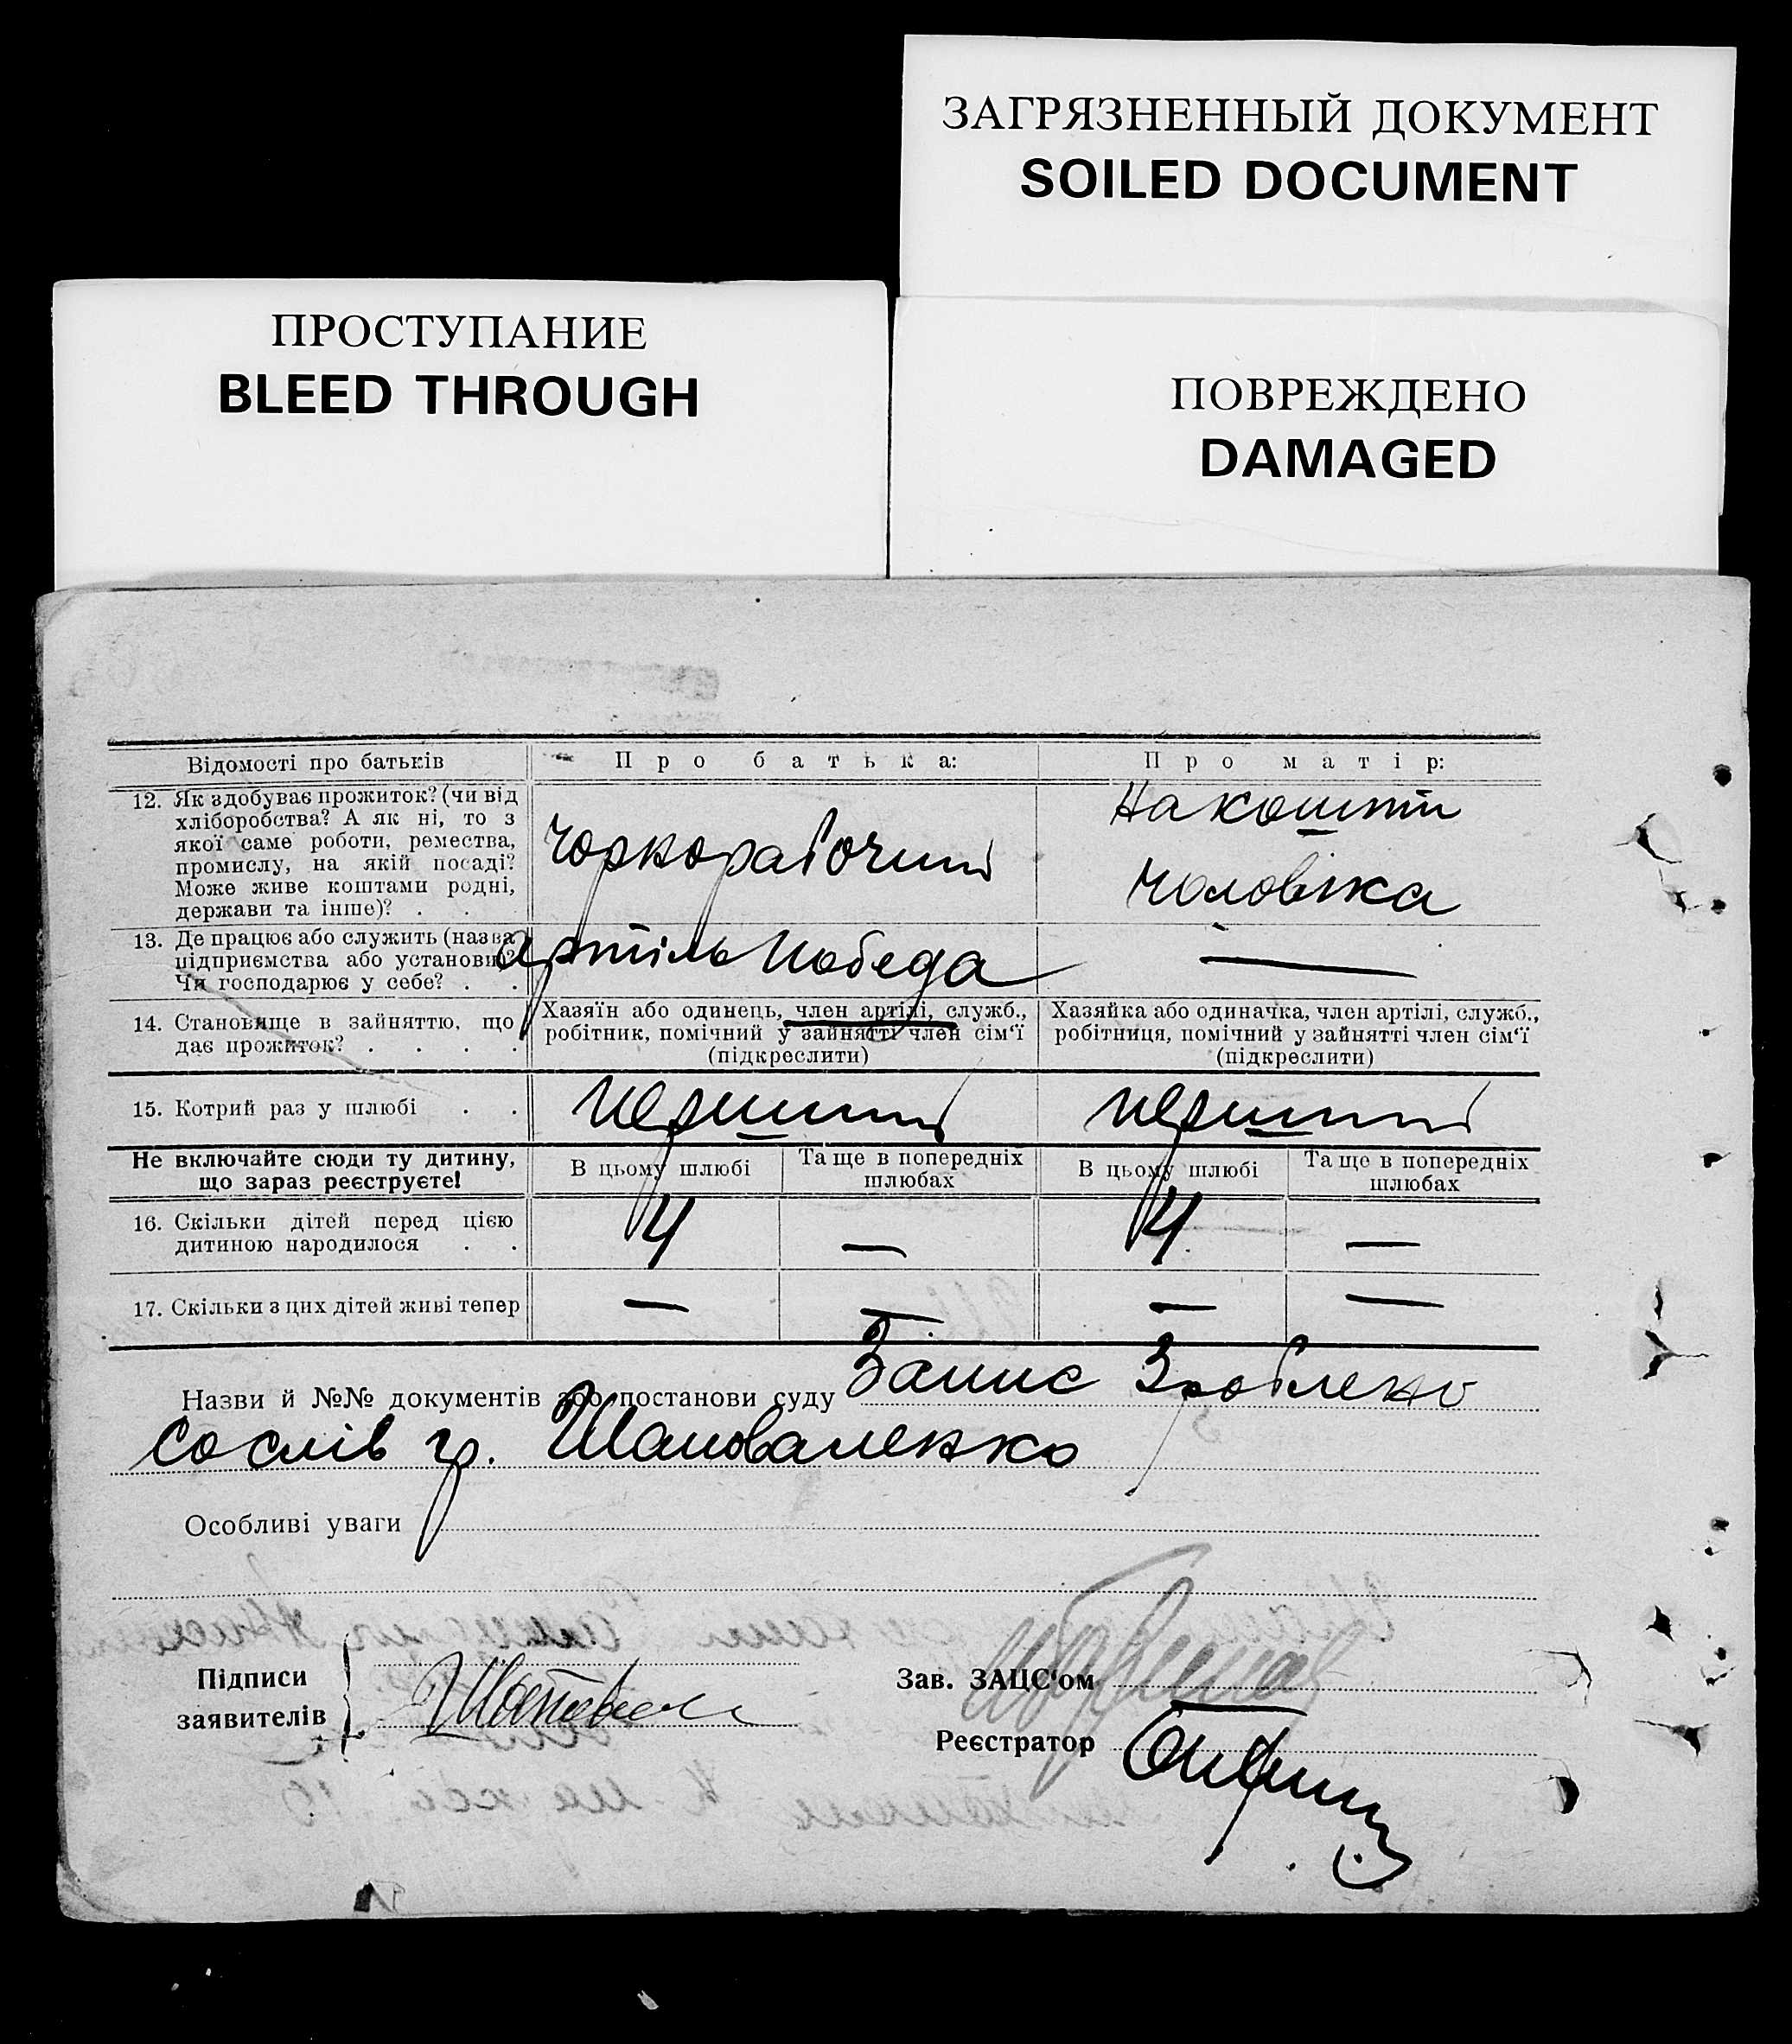 ЗАГРЯЗНЕННЫЙ ДОКУМЕНТ
SOILED DOCUMENT
ПРОСТУПАНИЕ
BLEED THROUGH
ПОВРЕЖДЕНО
DAMAGED
Відомості про батьків
Про батька:
Про матір:
12. Як здобуває прожиток? (чи від
хліборобства? А як ні, то з
якої саме роботи, ремества,
промислу, на якій посаді?
Може живе коштами родні,
держави та інше)? . .
Чорнорабочий
На кошти
чоловіка
13. Де працює або служить (назва
підприємства або установи)?
Чи господарює у себе? . .
артіль Победа
—
14. Становище в зайняттю, що
дає прожиток? . . . .
Хазяїн або одинець, член артілі, служб.,
робітник, помічний у зайнятті член сім‘ї
(підкреслити)
Хазяйка або одиначка, член артілі, служб.,
робітниця, помічний у зайнятті член сім‘ї
(підкреслити)
15. Котрий раз у шлюбі . .
перший
перший
Не включайте сюди ту дитину,
що зараз реєструєте!
В цьому шлюбі
Та ще в попередніх
шлюбах
В цьому шлюбі
Та ще в попередніх
шлюбах
16. Скільки дітей перед цією
дитиною народилося . .
4
—
4
—
17. Скільки з цих дітей живі тепер
—
—
—
—
Назви й №№ документів або постанови суду Запис Зроблено
со слів гр. Шаповаленко
Особливі уваги
Підписи
заявителів
Зав. ЗАЦС‘ом
Реєстратор